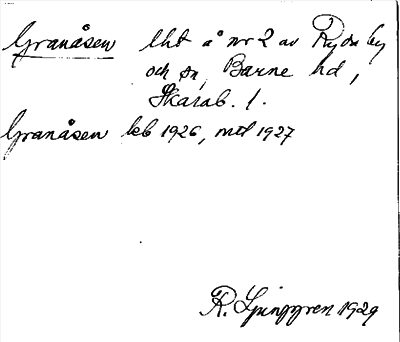 Granåsen lht å nr 2 av Ryda by
och sn, Barne hd,
Skarab. l.
Granåsen kb 1926, mtl 1927
R. Ljunggren 1929